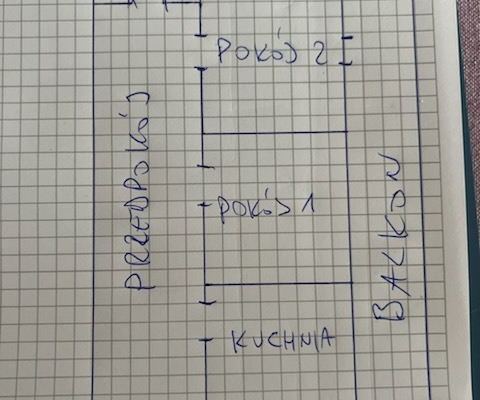 POKÓJ 2
PRZEDPOKÓJ
POKÓJ 1
BALKON
KUCHNIA